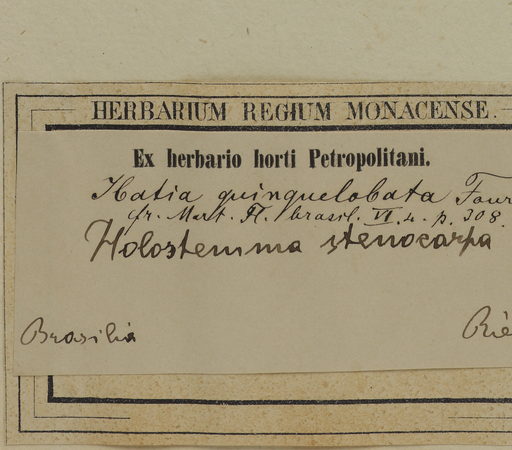 HERBARIUM REGIUM MONACENSE.
Ex herbario horti Petropolitani.
Ibatia quinquelobata Four
fr. Mart. Fl. brasil. VI. 4. p. 308.
Holostemma stenocarpa
Brasilia Rie